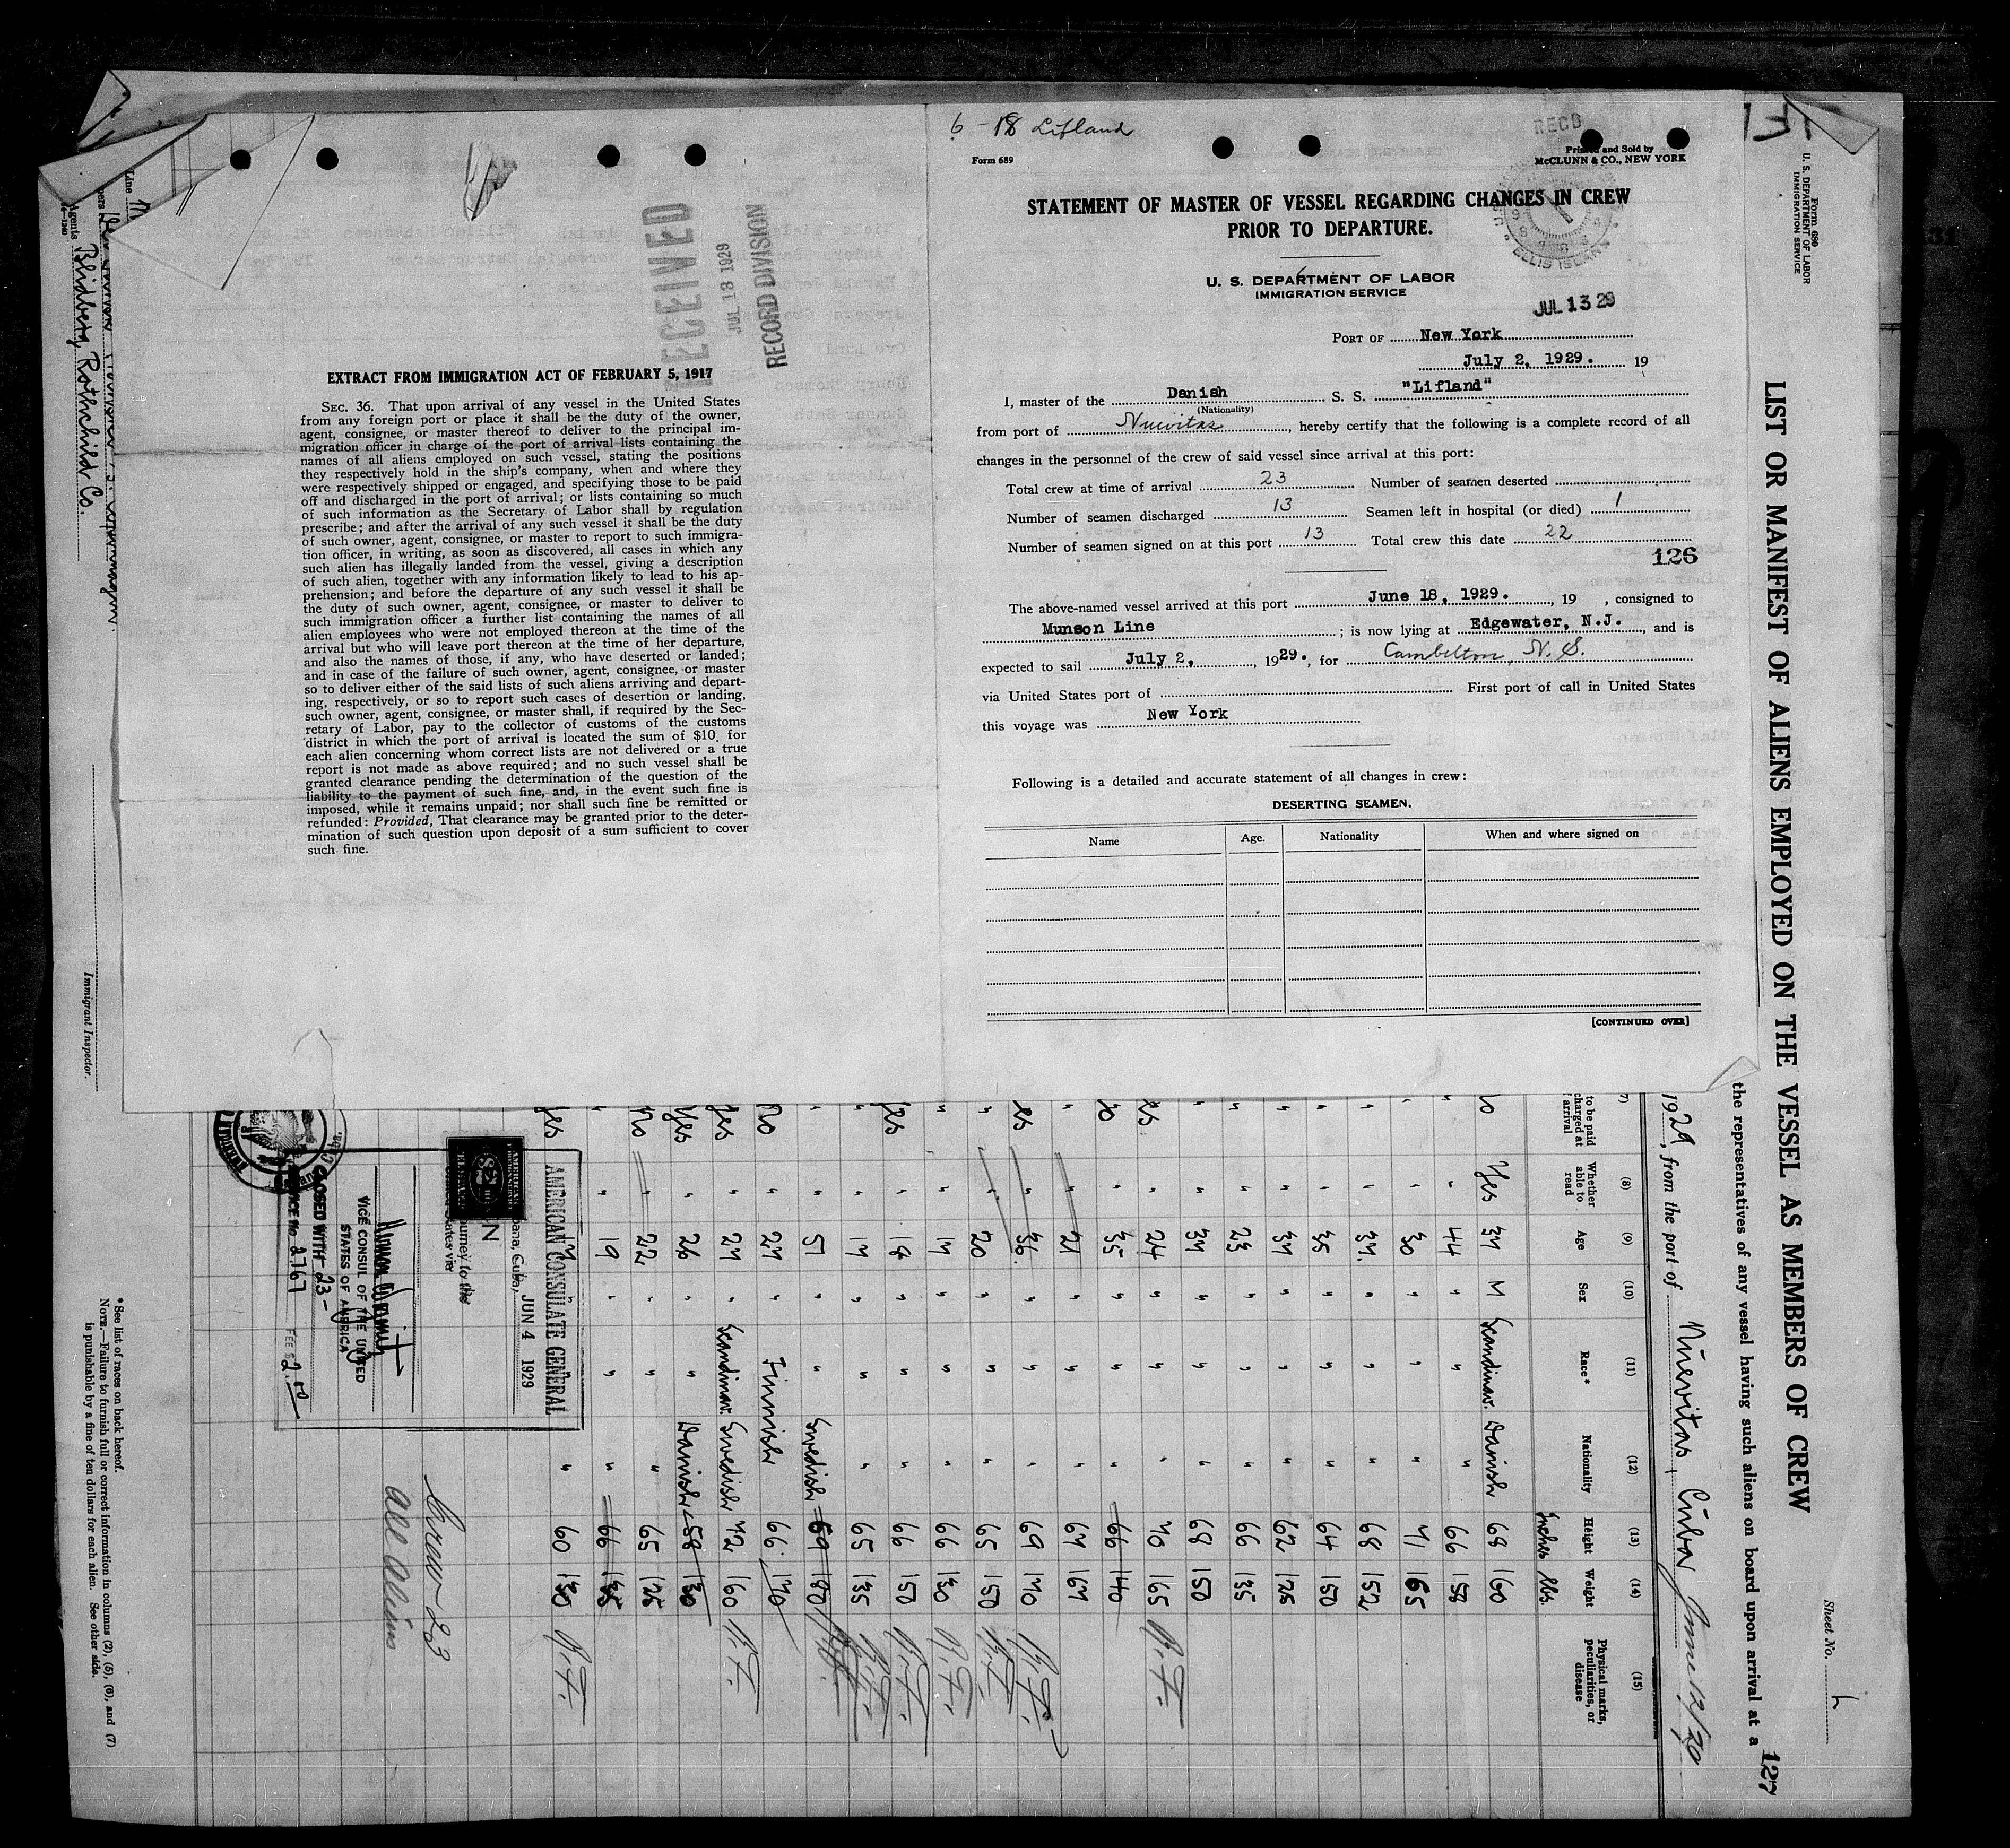 6-18 Lifland
Form 689
RECD
Printed and Sold by
McCLUNN & CO., NEW YORK
STATEMENT OF MASTER OF VESSEL REGARDING CHANGES IN CREW
PRIOR TO DEPARTURE.
ELLIS ISLAND
U. S. DEPARTMENT OF LABOR
IMMIGRATION SERVICE
JUL 13 29
PORT OF New York
July 2, 1929. 19
I, master of the Danish S. S. "Lifland"
(Nationality)
from port of Nuevitas, hereby certify that the following is a complete record of all
changes in the personnel of the crew of said vessel since arrival at this port:
Total crew at time of arrival 23 Number of seamen deserted
Number of seamen discharged 13 Seamen left in hospital (or died) 1
Number of seamen signed on at this port 13 Total crew this date 22
126
The above-named vessel arrived at this port June 18, 1929. , 19 , consigned to
Munson Line ; is now lying at Edgewater, N.J. , and is
expected to sail July 2, , 1929. , for Cambelton, N. S.
via United States port of First port of call in United States
this voyage was New York
Following is a detailed and accurate statement of all changes in crew:
DESERTING SEAMEN.
Name Age. Nationality When and where signed on
[CONTINUED OVER]
RECEIVED
JUL 18 1929
RECORD DIVISION
EXTRACT FROM IMMIGRATION ACT OF FEBRUARY 5, 1917
SEC. 36. That upon arrival of any vessel in the United States
from any foreign port or place it shall be the duty of the owner,
agent, consignee, or master thereof to deliver to the principal im-
migration officer in charge of the port of arrival lists containing the
names of all aliens employed on such vessel, stating the positions
they respectively hold in the ship's company, when and where they
were respectively shipped or engaged, and specifying those to be paid
off and discharged in the port of arrival; or lists containing so much
of such information as the Secretary of Labor shall by regulation
prescribe; and after the arrival of any such vessel it shall be the duty
of such owner, agent, consignee, or master to report to such immigra-
tion officer, in writing, as soon as discovered, all cases in which any
such alien has illegally landed from the vessel, giving a description
of such alien, together with any information likely to lead to his ap-
prehension; and before the departure of any such vessel it shall be
the duty of such owner, agent, consignee, or master to deliver to
such immigration officer a further list containing the names of all
alien employees who were not employed thereon at the time of the
arrival but who will leave port thereon at the time of her departure,
and also the names of those, if any, who have deserted or landed;
and in case of the failure of such owner, agent, consignee, or master
so to deliver either of the said lists of such aliens arriving and depart-
ing, respectively, or so to report such cases of desertion or landing,
such owner, agent, consignee, or master shall, if required by the Sec-
retary of Labor, pay to the collector of customs of the customs
district in which the port of arrival is located the sum of $10 for
each alien concerning whom correct lists are not delivered or a true
report is not made as above required; and no such vessel shall be
granted clearance pending the determination of the question of the
liability to the payment of such fine, and, in the event such fine is
imposed, while it remains unpaid; nor shall such fine be remitted or
refunded: Provided, That clearance may be granted prior to the deter-
mination of such question upon deposit of a sum sufficient to cover
such fine.
Form 680
U. S. DEPARTMENT OF LABOR
IMMIGRATION SERVICE
Sheet No. 1
LIST OR MANIFEST OF ALIENS EMPLOYED ON THE VESSEL AS MEMBERS OF CREW
127
the representatives of any vessel having such aliens on board upon arrival at a
1929, from the port of Nuevitas, Cuba June 12/29
(8) (9) (10) (11) (12) (13) (14) (15)
to be paid
charged at
arrival
Whether able to read Age Sex Race* Nationality Height Weight Physical marks, peculiarities, or disease
Inches lbs.
Yes 37 M Scandinav. Danish 68 160
" 44 " " " 66 158
" 30 " " " 71 165
" 37 " " " 68 152
" 35 " " " 64 150
" 37 " " " 62 125
" 23 " " " 66 135
" 37 " " " 68 150
" 24 " " " 70 165 B.F.
" 35 " " " 66 140
" 21 " " " 67 167
" 36 " " " 69 170 B.F.
" 20 " " " 65 150 B.F.
" 17 " " " 66 130 B.F.
Yes " 18 " " " 66 150 B.F.
" 17 " " " 65 135 B.F.
" 51 " " Swedish 69 180
No " 27 " Finnish 66 170
Yes " 27 " Scandinav. Swedish 72 160 B.F.
Yes " 26 " " Danish 58 130
No " 22 " " " 65 125
" 19 " " " 66 135
Yes " " " 60 130 B.F.
AMERICAN CONSULATE GENERAL
Cuba, JUN 4 1929
journey to the
United States via
VICE CONSUL OF THE UNITED
STATES OF AMERICA
CLOSED WITH 23-
SERVICE No. 2767
FEE $ 2.00
Crew 23
all alien
* See list of races on back hereof.
NOTE.—Failure to furnish full or correct information in columns (2), (5), (6), and (7)
is punishable by a fine of ten dollars for each alien. See other side.
Immigrant Inspector.
Line
Agents Blidberg, Rothchild Co.